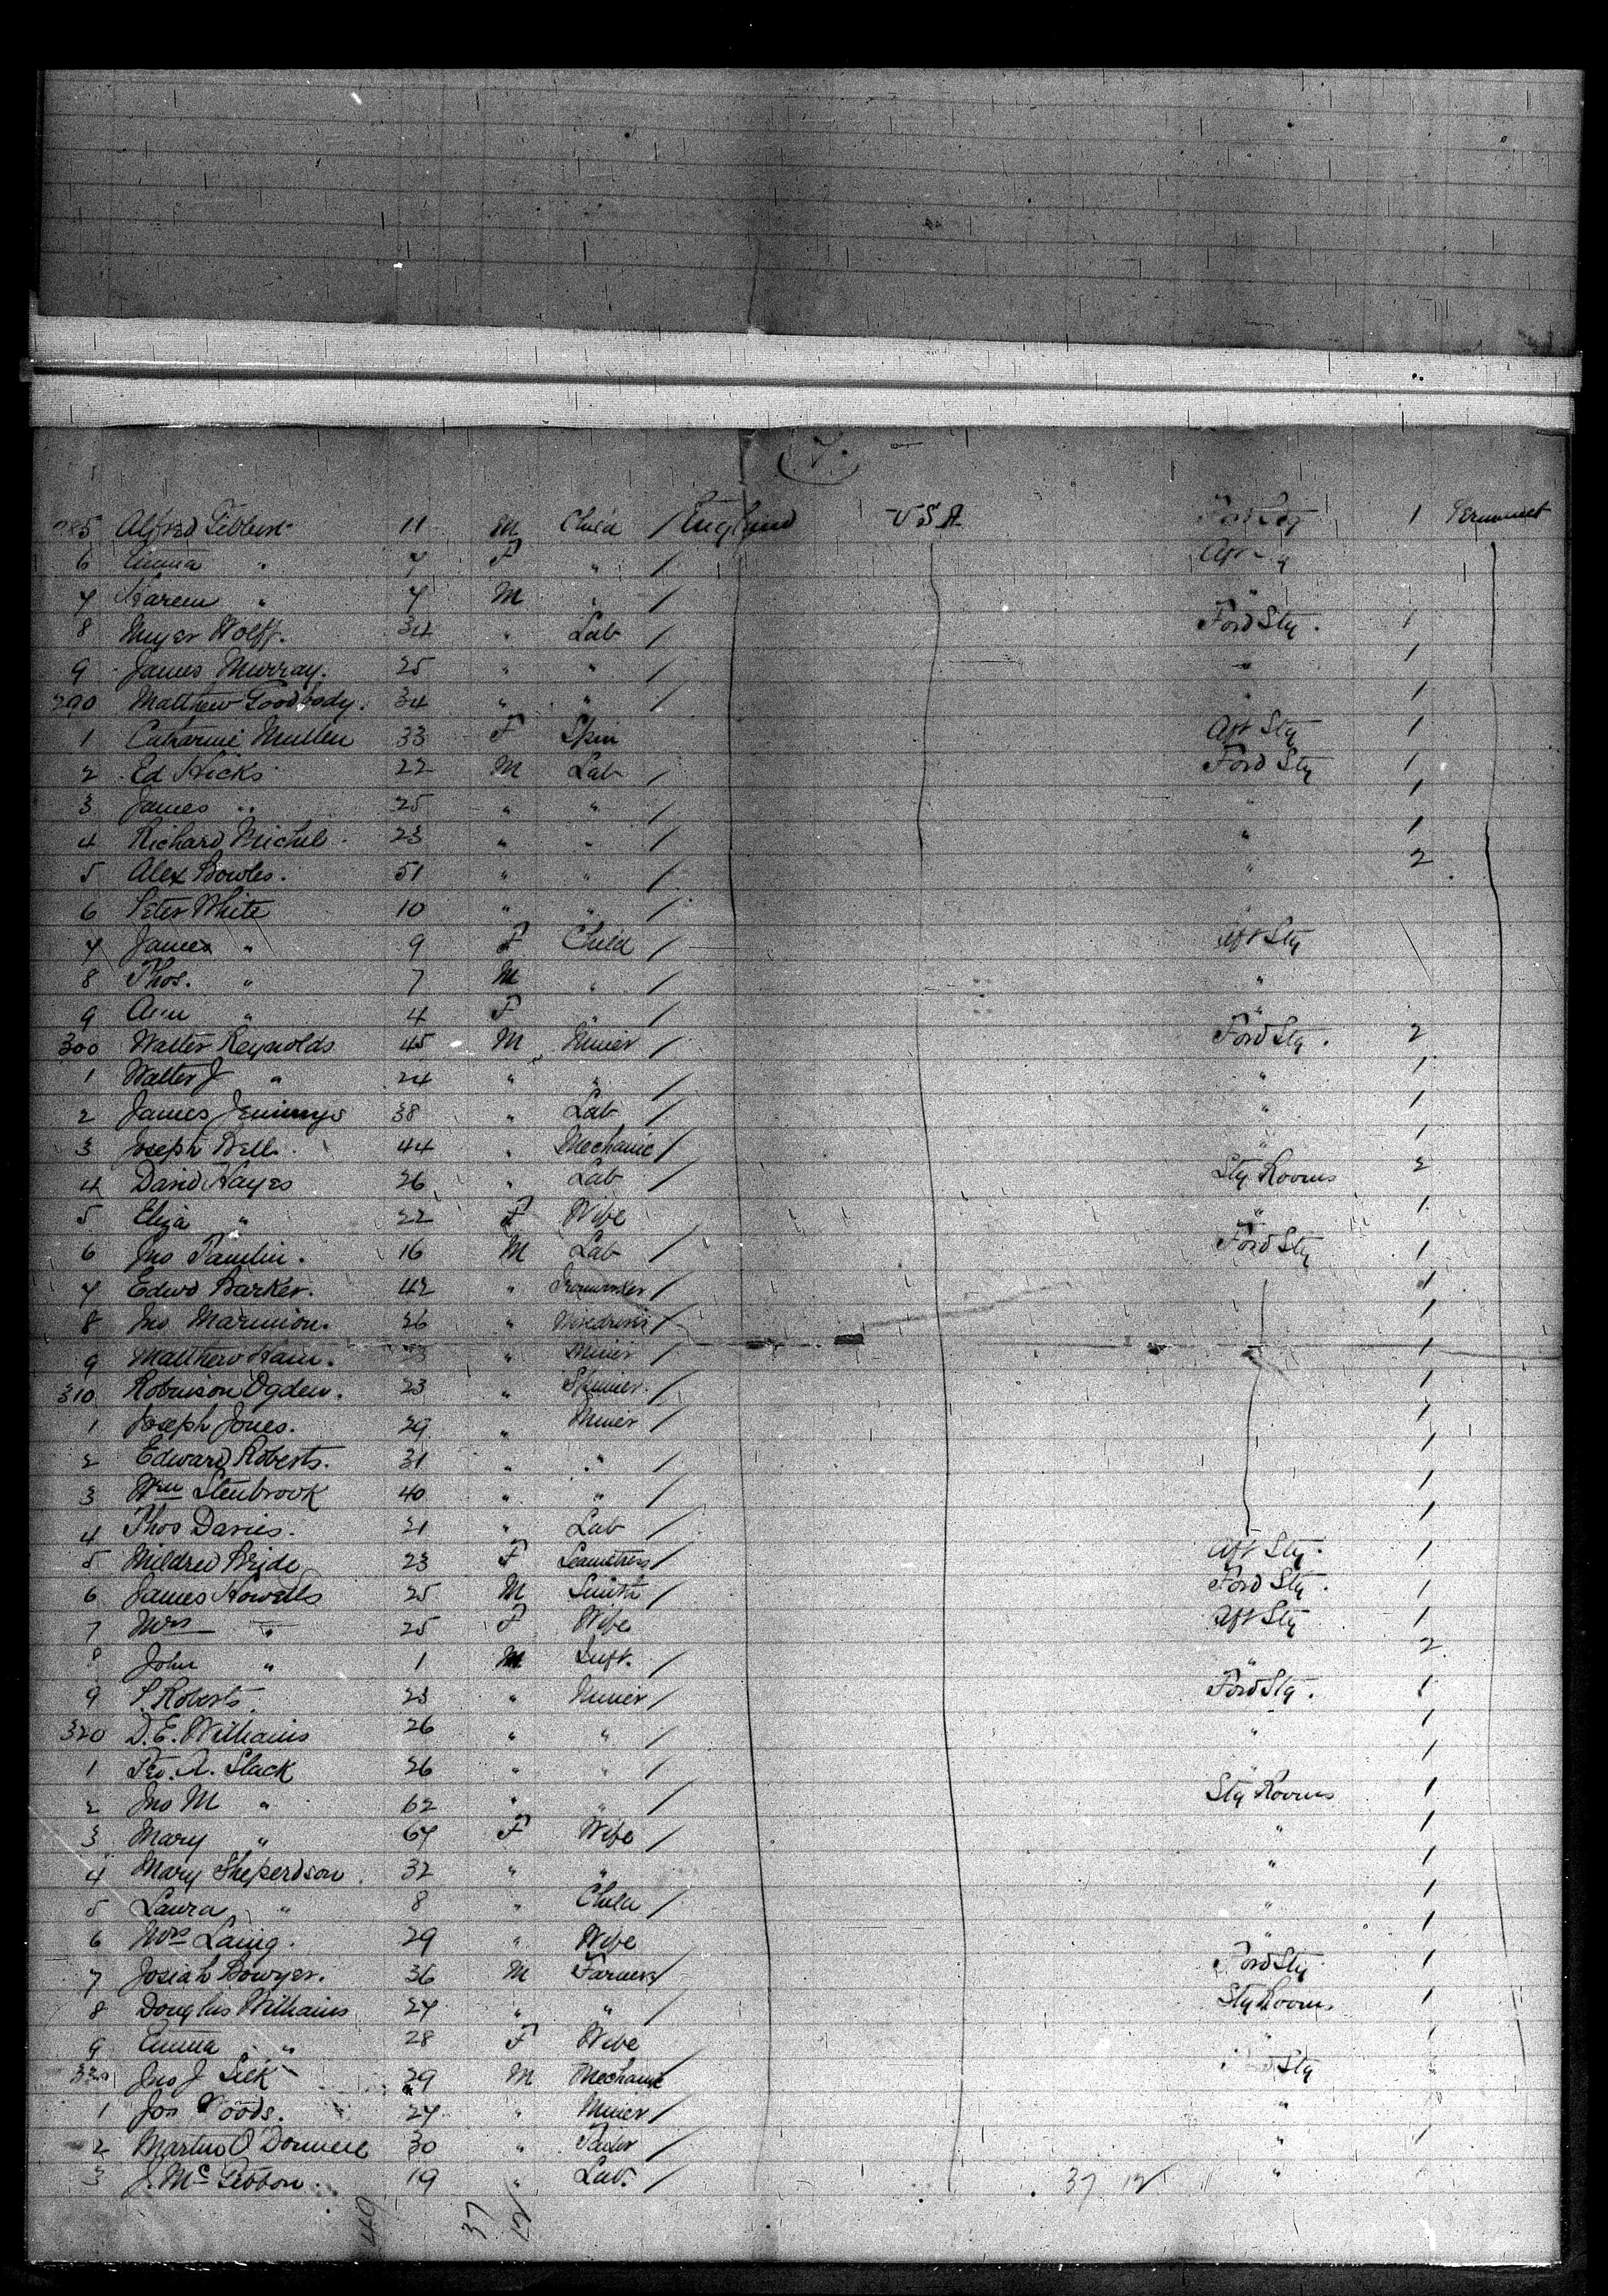 7.
285 Alfred Gibbon 11 M Child / England U S A Ford Sty 1 Permanent
6 Emma " 7 F " / Aft "
7 Harem " 4 M " / "
8 Meyer Wolff. 34 " Lab / Ford Sty. 1
9 James Murray. 25 " " / " 1
290 Matthew Goodbody. 34 " " / " 1
1 Catharine Mullen 33 F Spin Aft Sty 1
2 Ed Hicks 22 M Lab / Ford Sty 1
3 James " 25 " " / " 1
4 Richard Michel 23 " " / " 1
5 Alex Bowles. 51 " " / " 2
6 Peter White 10 " " / "
7 James " 9 F Child / Aft Sty
8 Thos. " 7 M " / "
9 Ann " 4 F " / "
300 Walter Reynolds 45 M Miner / Ford Sty. 2
1 Walter J " 24 " " / " 1
2 James Jennings 38 " Lab / " 1
3 Joseph Bell. 44 " Mechanic / " 1
4 David Hayes 26 " Lab / Sty Rooms 2
5 Eliza " 22 F Wife " 1
6 Jno Tamlin. 16 M Lab / Ford Sty 1
7 Edwd Barker. 42 " Ironworker / 1
8 Jno Marmion. 26 " / 1
9 Matthew Ham. " Miner / 1
310 Robinson Ogden. 23 " Spinner. / 1
1 Joseph Jones. 29 " Miner / 1
2 Edward Roberts. 31 " " / 1
3 Wm Stenbrook 40 " " / 1
4 Thos Davies. 21 " Lab / 1
5 Mildred Bride 23 F Seamstress / Aft Sty. 1
6 James Howells 25 M Smith / Ford Sty. 1
7 Mrs " 25 F Wife Aft Sty 1
8 John " 1 M Inft. / " 2
9 P. Roberts 23 " Miner / Ford Sty. 1
320 D. E. Williams 26 " " / " 1
1 Geo. A. Slack 26 " " / " 1
2 Jno M " 62 " " / Sty Rooms 1
3 Mary " 67 F Wife / " 1
4 Mary Sheperdson 32 " " " 1
5 Laura " 8 " Child / " 1
6 Mrs Laing. 29 " Wife " 1
7 Josiah Bowyer. 36 M Farmer / Ford Sty 1
8 Douglas Williams 27 " " / Sty Rooms 1
9 Emma " 28 F Wife " 1
330 Jno J Seek 29 M Mechanic / Sty
1 Jos Woods. 27 " Miner / "
2 Martin O'Donnell 30 " / " 1
3 J. McGibbon. 19 " Lab. / 37 12 "
49 37 12